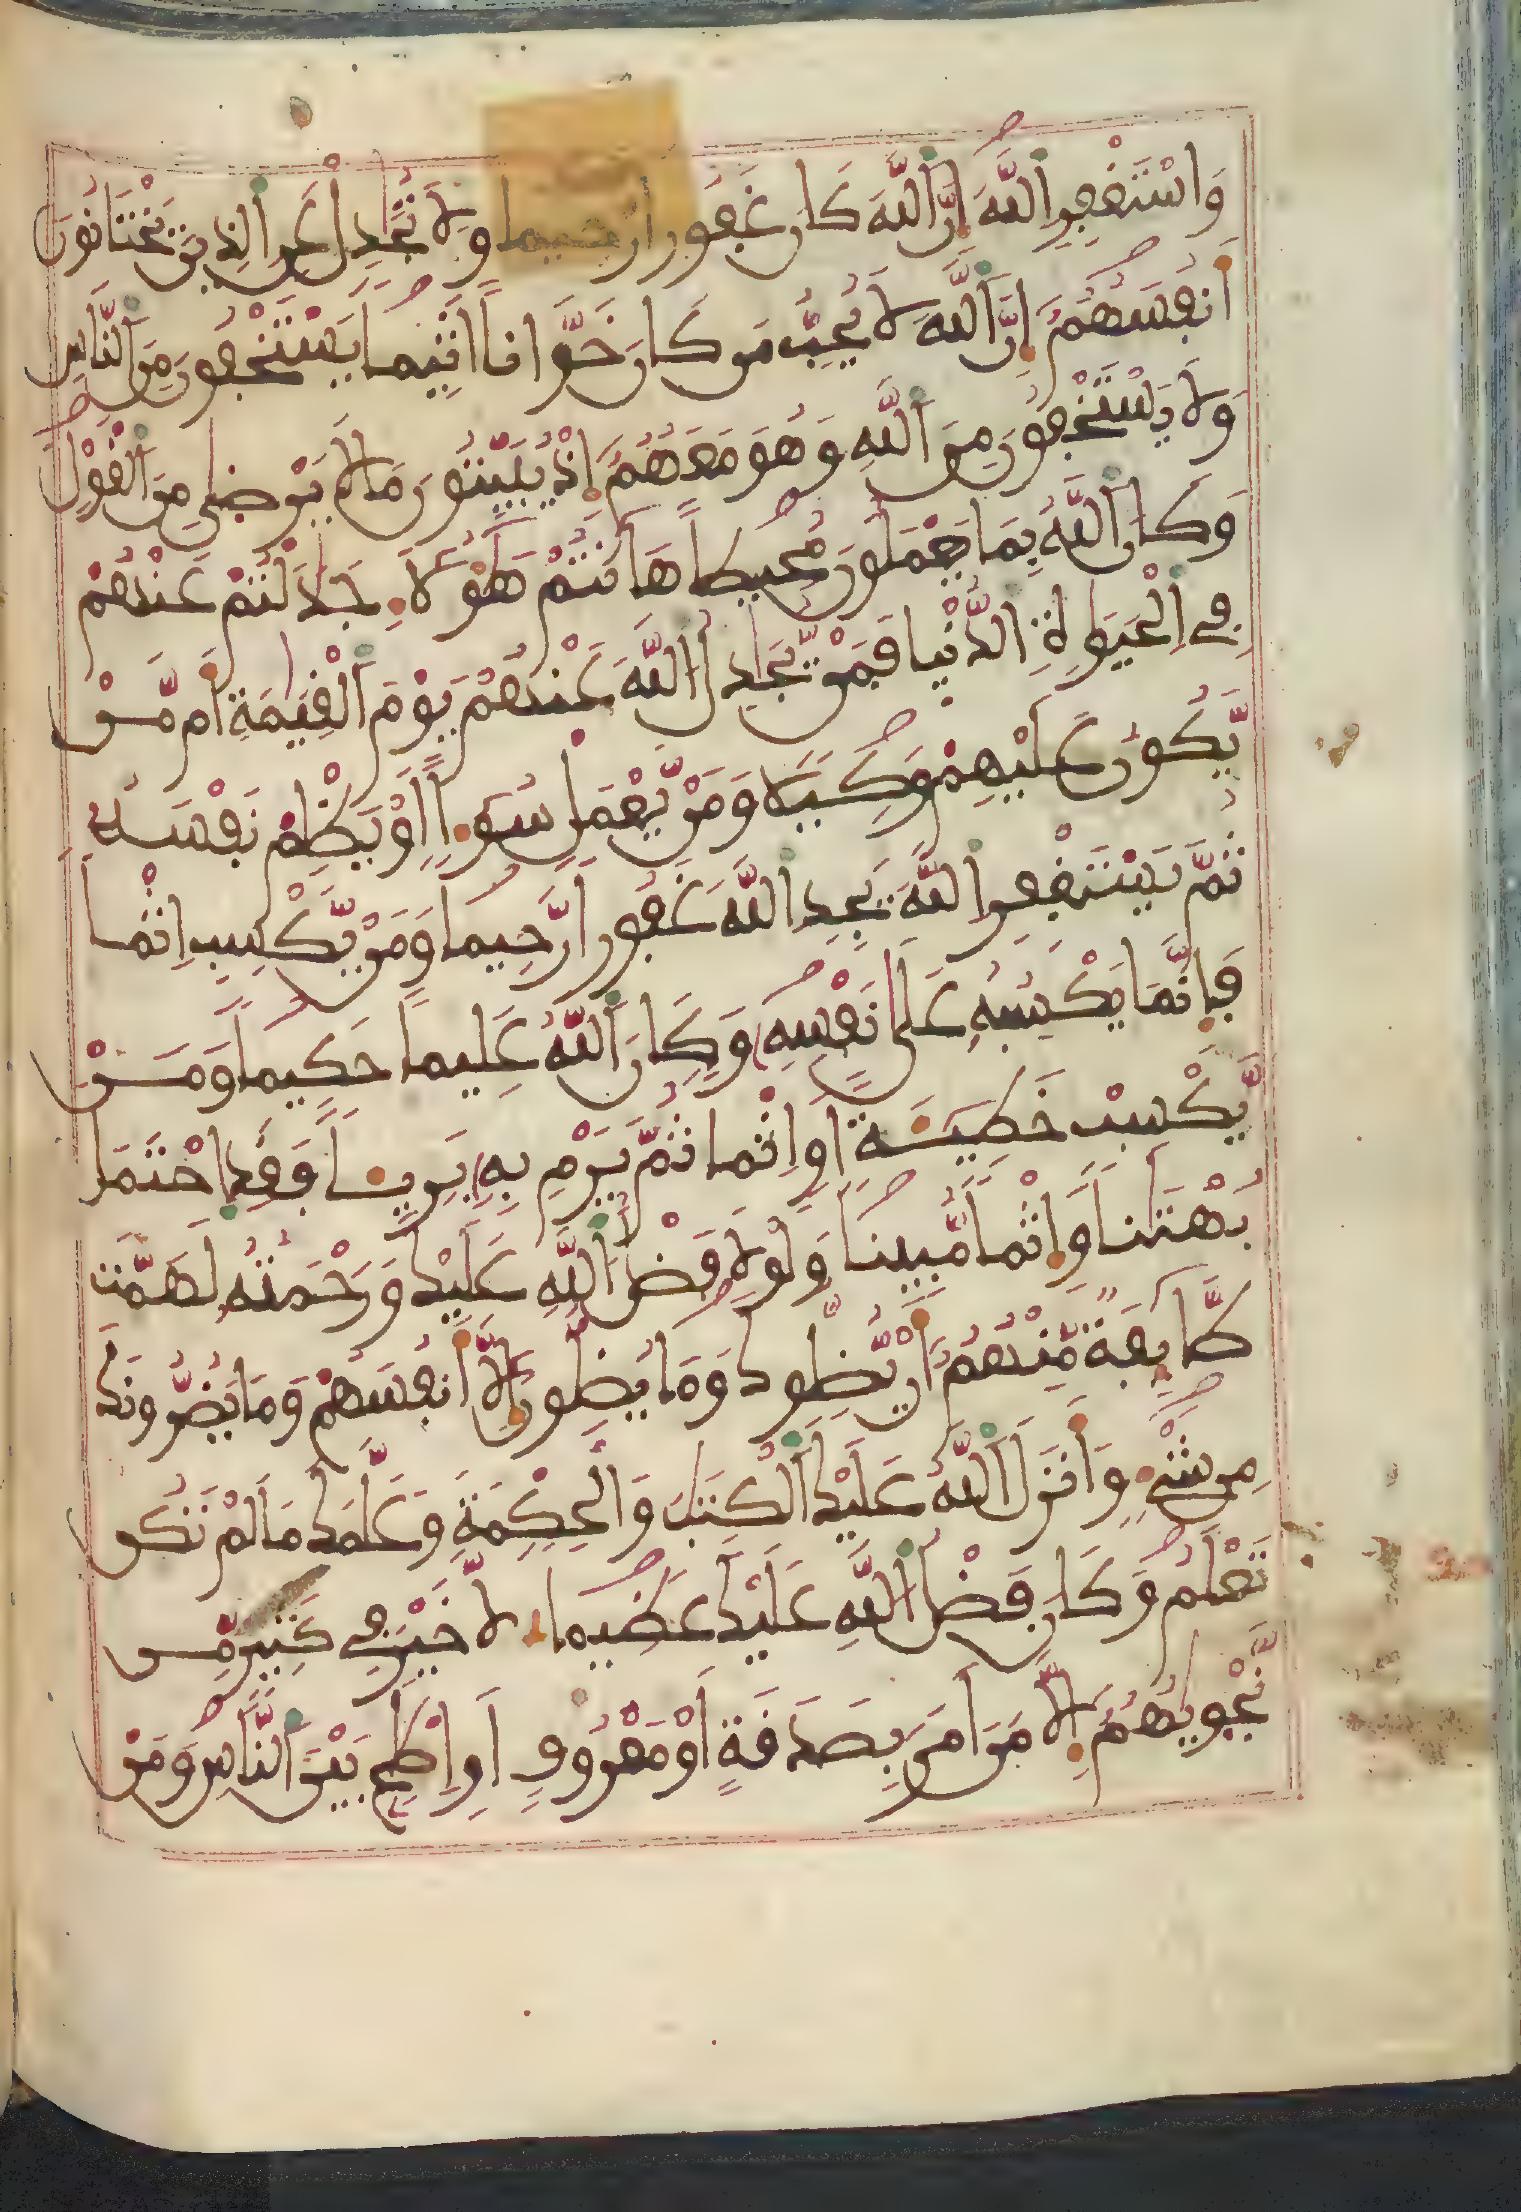 وَاسْتَغْفِرِ اللَّهَ إِنَّ اللَّهَ كَانَ غَفُورًا رَّحِيمًا وَلَا تُجَٰدِلْ عَنِ الذِينَ يَخْتَانُونَ
أَنفُسَهُمُ إِنَّ اللَّهَ لَا يُحِبُّ مَن كَانَ خَوَّانًا اثِيمًا يَسْتَخْفُونَ مِنَ النَّاسِ
وَلَا يَسْتَخْفُونَ مِنَ اللَّهِ وَهُوَ مَعَهُمُ إِذْ يُبَيِّتُونَ مَا لَا يَرْضَىٰ مِنَ الْقَوْلِ
وَكَانَ اللَّهُ بِمَا يَعْمَلُونَ مُحِيطًا هَٰا نتُمْ هَٰؤُلَاءِ جَٰدَلْتُمْ عَنْهُمْ
فِي الْحَيَوٰةِ الدُّنْيَا فَمَنْ يُّجَٰدِلُ اللَّهَ عَنْهُمْ يَوْمَ الْقِيَٰمَةِ أَم مَّنْ
يَّكُونُ عَلَيْهِمْ وَكِيلًا وَمَنْ يَّعْمَلْ سُوءًا اَوْ يَظْلِمْ نَفْسَهُ
ثُمَّ يَسْتَغْفِرِ اللَّهَ يَجِدِ اللَّهَ غَفُورًا رَّحِيمًا وَمَنْ يَّكْسِبِ اثْمًا
فَإِنَّمَا يَكْسِبُهُ عَلَىٰ نَفْسِهِ وَكَانَ اللَّهُ عَلِيمًا حَكِيمًا وَمَنْ
يَّكْسِبْ خَطِيئَةً اَوِ اثْمًا ثُمَّ يَرْمِ بِهِ بَرِيئًا فَقَدِ احْتَمَلَ
بُهْتَٰنًا وَإِثْمًا مُّبِينًا وَلَوْلَا فَضْلُ اللَّهِ عَلَيْكَ وَرَحْمَتُهُ لَهَمَّت
طَّائِفَةٌ مِّنْهُمُ أَنْ يُّضِلُّوكَ وَمَا يُضِلُّونَ إِلَّا أَنفُسَهُمْ وَمَا يَضُرُّونَكَ
مِن شَيْءٍ وَأَنزَلَ اللَّهُ عَلَيْكَ الْكِتَٰبَ وَالْحِكْمَةَ وَعَلَّمَكَ مَا لَمْ تَكُن
تَعْلَمُ وَكَانَ فَضْلُ اللَّهِ عَلَيْكَ عَظِيمًا لَا خَيْرَ فِي كَثِيرٍ مِّن
نَّجْوٰىٰهُمُ إِلَّا مَنَ امَرَ بِصَدَقَةٍ اَوْ مَعْرُوفٍ اَوِ اصْلَٰحٍ بَيْنَ النَّاسِ وَمَنْ